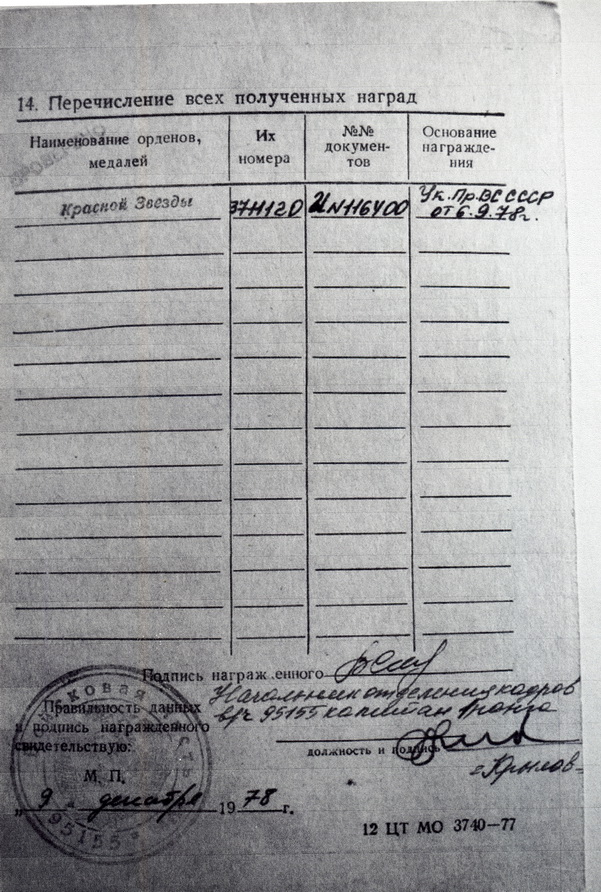 14. Перечисление всех полученных наград
Наименование орденов, медалей
Их номера
№№ документов
Основание награжде-
ния
Красной Звезды
И №116400
Ук. Пр. ВС СССР
от 6.9.78г.
Подпись награжденного
Начальник отделения кадров
Правильность данных
в/ч 95155 капитан
и подпись награжденного
свидетельствую:
должность и подпись
=Крылов=
М. П.
„ 9 " декабря 1978 г.
войсковая часть
95155
12 ЦТ МО 3740—77